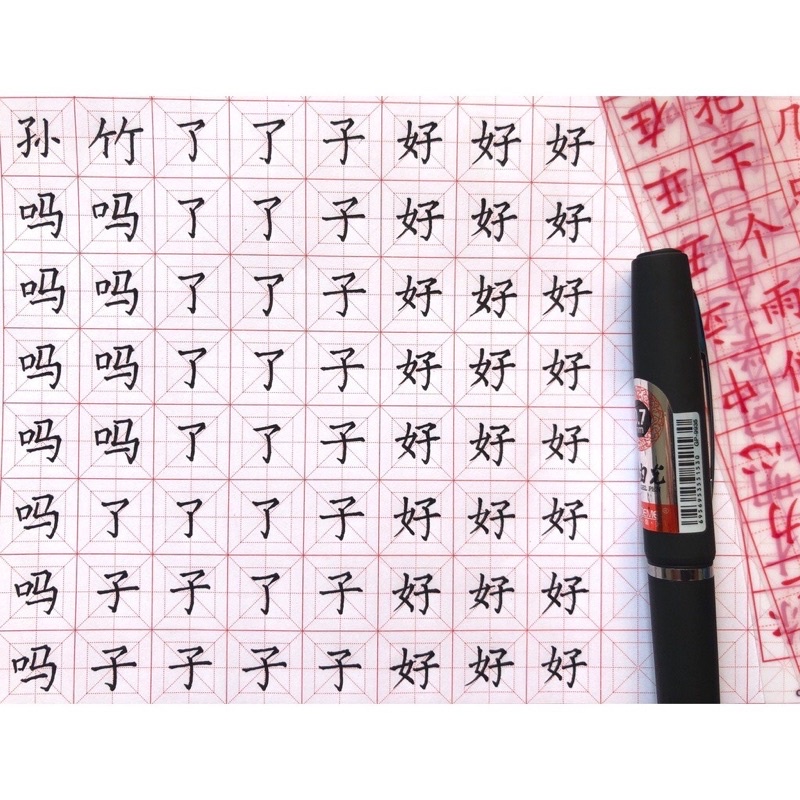 孙竹了了子好好好
吗吗了了子好好好
吗吗了了子好好好
吗吗了了子好好好
吗吗了了子好好好
吗了了了子好好好
吗子子了子好好好
吗子子子子好好好
在
正
下
个
雨
中
心
力